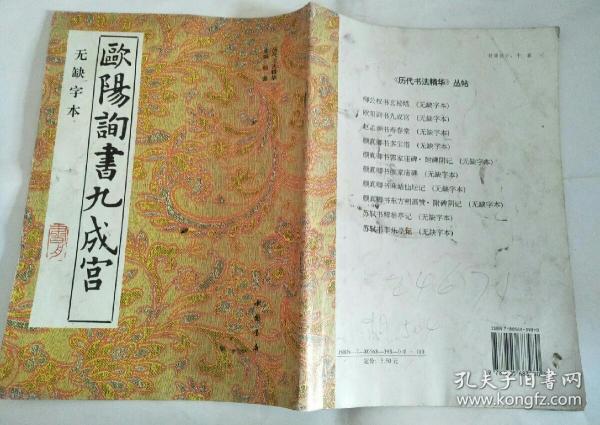 歐陽詢書九成宫
无缺字本
中国书店
《历代书法精华》丛帖
柳公权书玄秘塔（无缺字本）
欧阳询书九成宫（无缺字本）
赵孟頫书寿春堂（无缺字本）
颜真卿书多宝塔（无缺字本）
颜真卿书郭家庙碑·附碑阴记（无缺字本）
颜真卿书颜家庙碑（无缺字本）
颜真卿书麻姑仙坛记（无缺字本）
颜真卿书东方朔画赞·附碑阴记（无缺字本）
苏轼书醉翁亭记（无缺字本）
苏轼书丰乐亭记（无缺字本）
定价：5.50元
孔夫子旧书网
www.kongfz.com